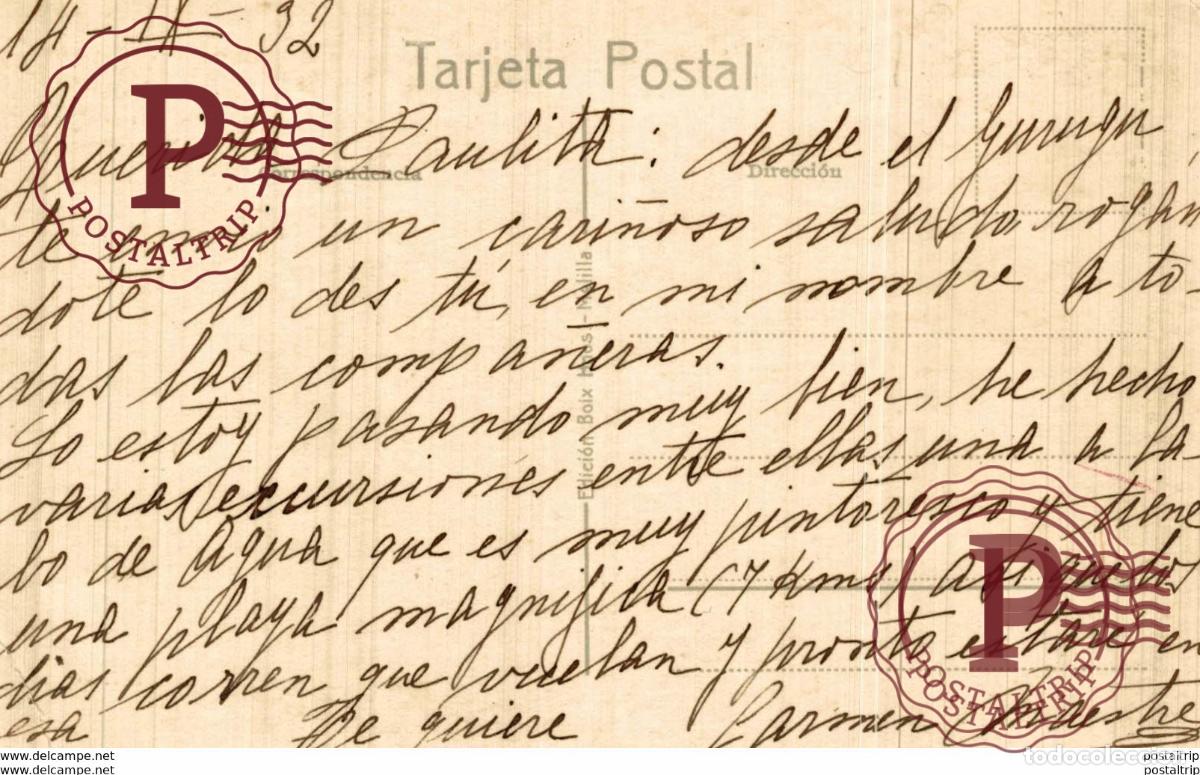 14-IX-32
Tarjeta Postal
Querida Paulita: desde el Gurugu,
Correspondencia
Dirección
te envio un cariñoso saludo, rogan
dote lo des tú, en mi nombre a to-
das las compañeras.
Lo estoy pasando muy bien, he hecho
varias excursiones entre ellas una a la
bo de Agua que es muy pintoresco y tiene
una playa magnifica (7 Kms) asi que los
dias corren que vuelan y pronto estaré en
esa Te quiere Carmen Maestre
Edición Boix Hnos - Melilla
P
POSTALTRIP
P
POSTALTRIP
POSTALTRIP
todocoleccion
www.delcampe.net
www.delcampe.net
postaltrip
postaltrip